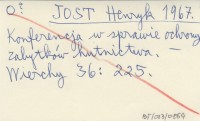 O? JOST Henryk 1967.
Konferencja w sprawie ochrony
zabytków hutnictwa. —
Wierchy 36: 225.